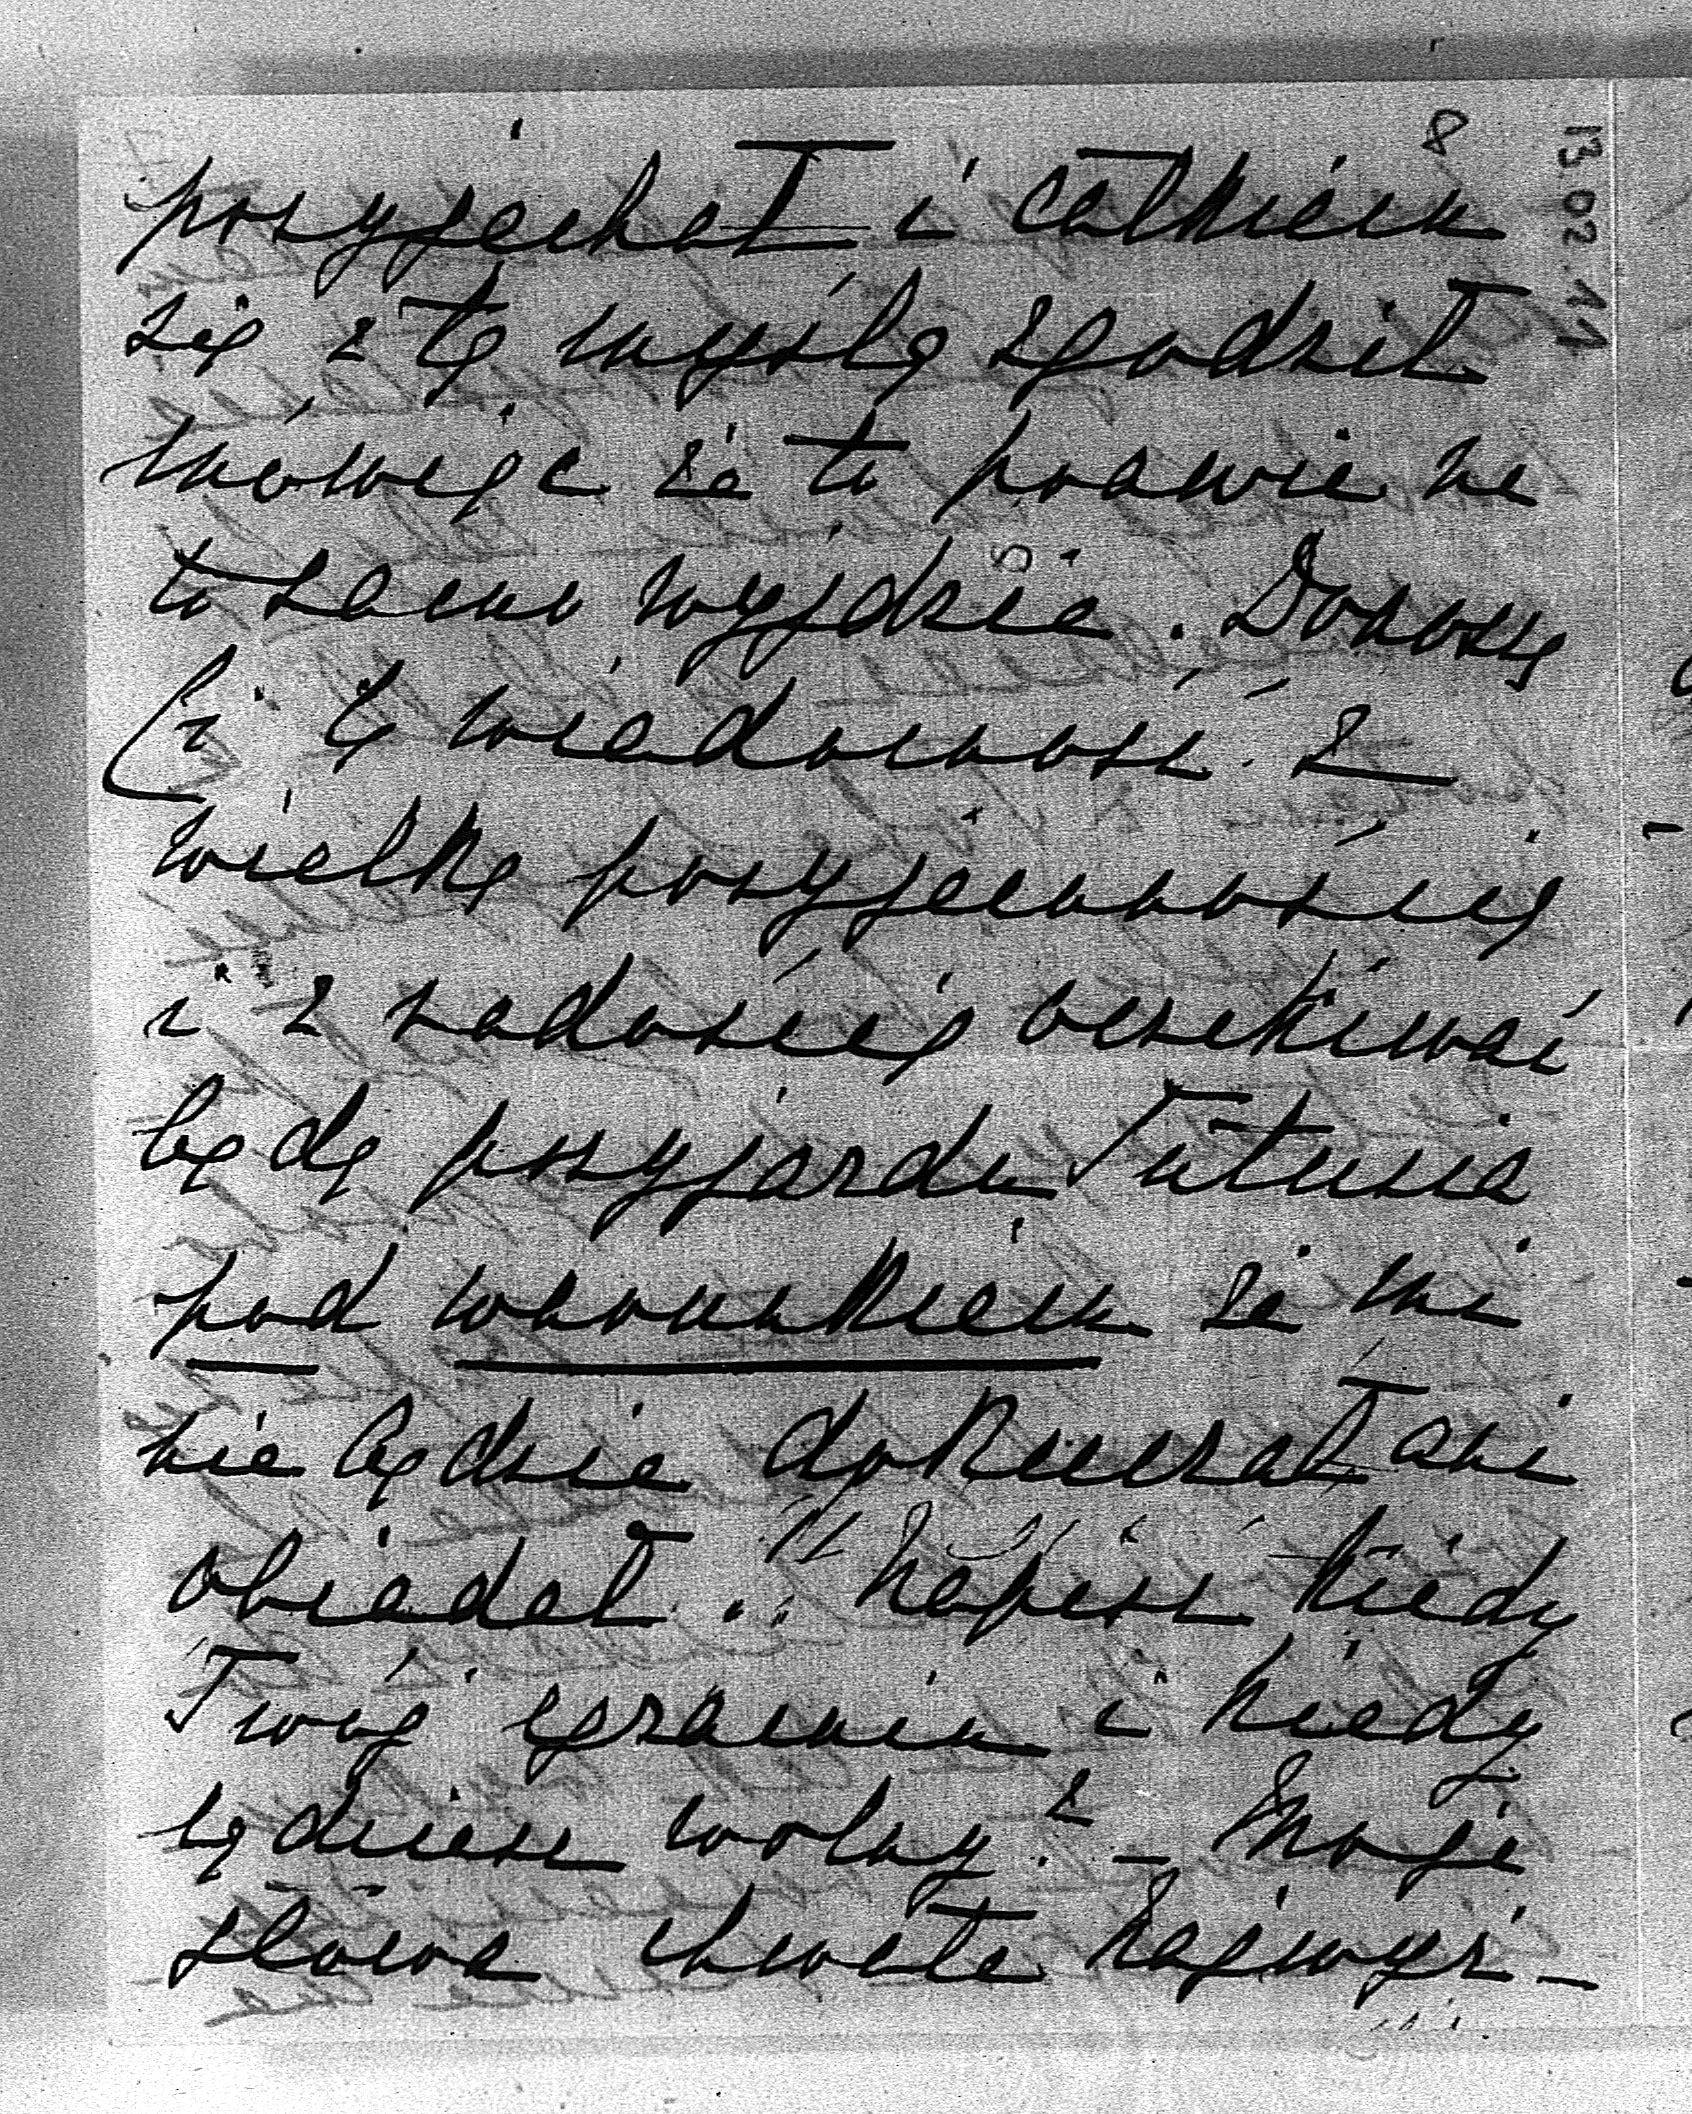 8
13.02.11
przyjechał i całkiem
się z tą myślą zgodził
mówiąc że to prawie na
to samo wyjdzie. Donoszę
Ci tę wiadomość z
wielką przyjemnością
i z radością oczekiwać
będę przyjazdu Tatusia
pod warunkiem że mi
nie będzie dokuczał ani
obiadał .. Napisz kiedy
Twój egzamin i kiedy
będziesz wolny? – Moje
słowa chwata najwyż–